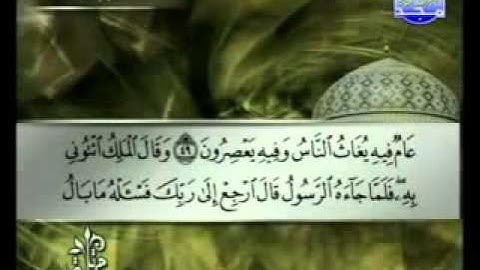 مجد
عَامٌ فِيهِ يُغَاثُ ٱلنَّاسُ وَفِيهِ يَعْصِرُونَ ٤٩ وَقَالَ ٱلْمَلِكُ ٱئْتُونِي
بِهِۦۖ فَلَمَّا جَآءَهُ ٱلرَّسُولُ قَالَ ٱرْجِعْ إِلَىٰ رَبِّكَ فَسْـَٔلْهُ مَا بَالُ